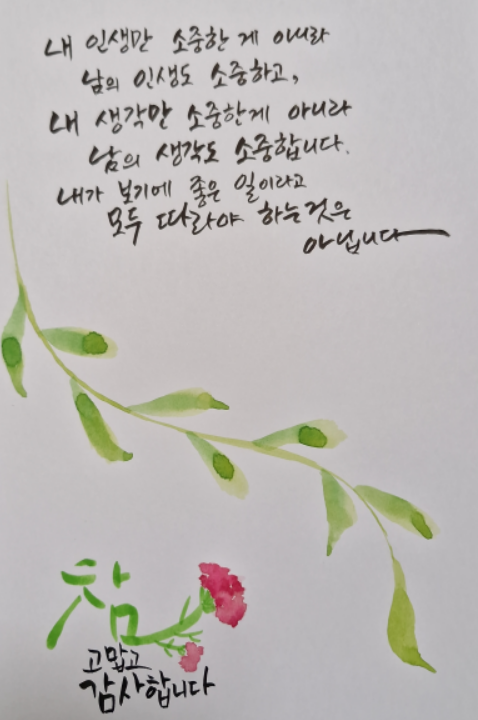 내 인생만 소중한 게 아니라
남의 인생도 소중하고,
내 생각만 소중한게 아니라
남의 생각도 소중합니다.
내가 보기에 좋은 일이라고
모두 따라야 하는것은
아닙니다
참
고맙고
감사합니다